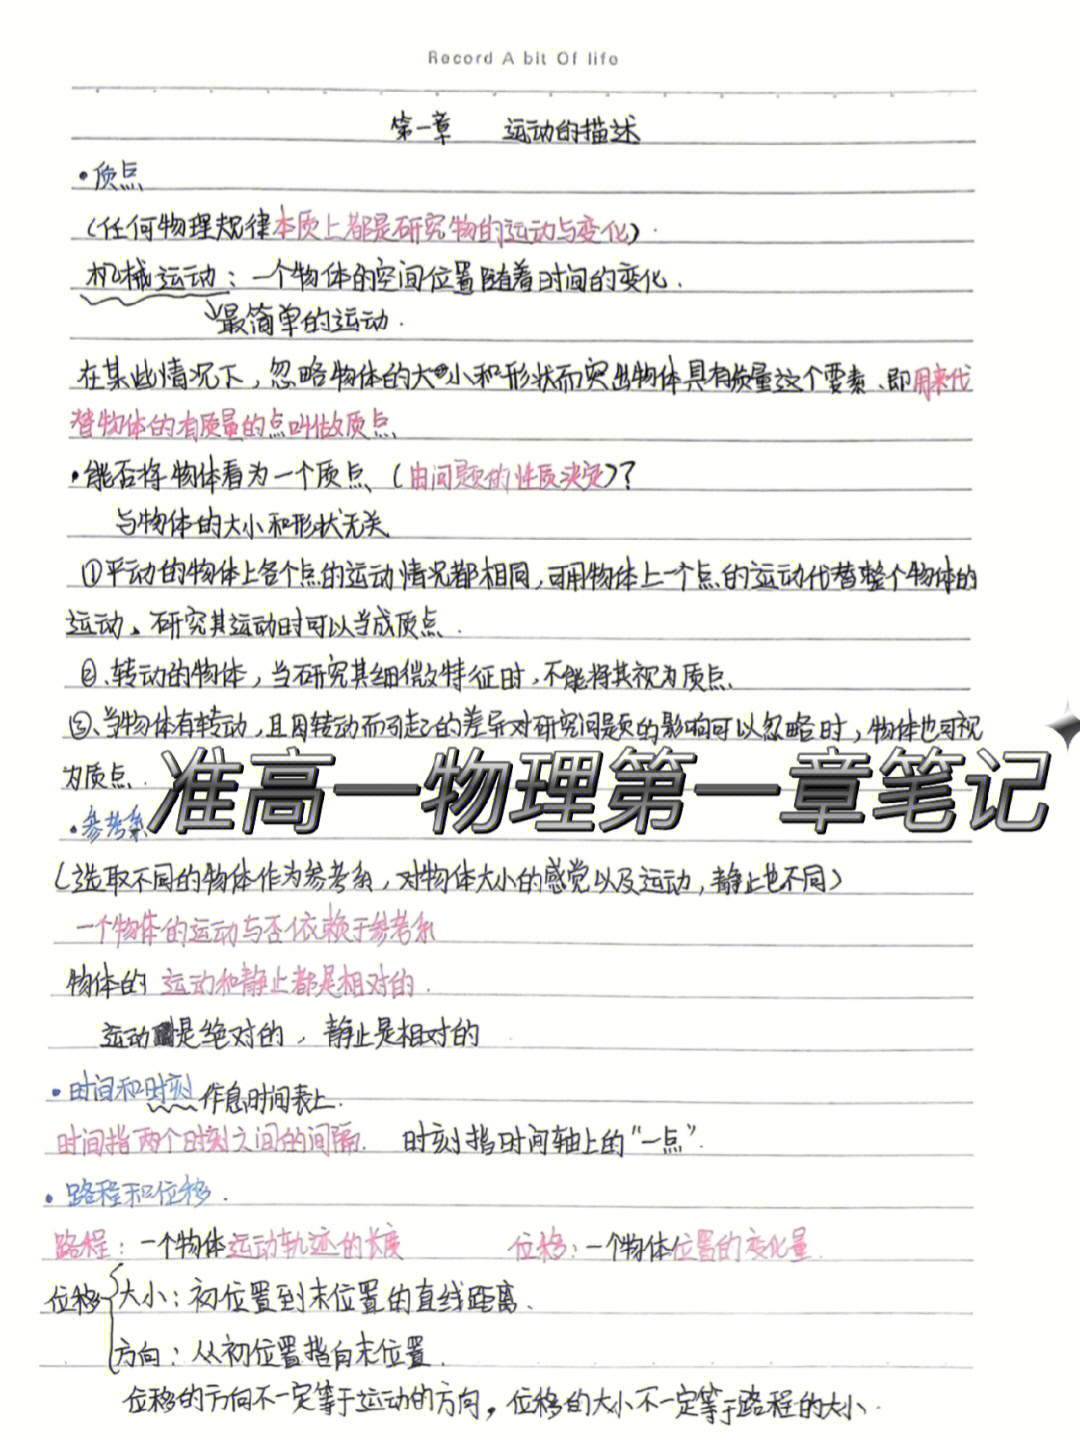 Record A bit Of life
第一章 运动的描述
·质点
(任何物理规律本质上都是研究物的运动与变化).
机械运动：一个物体的空间位置随着时间的变化.
最简单的运动.
在某些情况下，忽略物体的大小和形状而突出物体具有质量这个要素、即用来代
替物体的有质量的点叫做质点
·能否将物体看为一个质点 (由问题的性质决定)?
与物体的大小和形状无关
①平动的物体上各个点的运动情况都相同，可用物体上一个点的运动代替整个物体的
运动、研究其运动时可以当成质点.
②、转动的物体，当研究其细微特征时，不能将其视为质点、
③、当物体有转动，且因转动而引起的差异对研究问题的影响可以忽略时，物体也可视
为质点.
准高一物理第一章笔记
·参考系
(选取不同的物体作为参考系，对物体大小的感觉以及运动，静止也不同)
一个物体的运动与否依赖于参考系
物体的 运动和静止都是相对的.
运动是绝对的，静止是相对的
·时间和时刻 作息时间表上.
时间指两个时刻之间的间隔. 时刻指时间轴上的“一点”.
·路程和位移.
路程：一个物体运动轨迹的长度 位移：一个物体位置的变化量.
位移 大小：初位置到末位置的直线距离.
方向：从初位置指向末位置.
位移的方向不一定等于运动的方向，位移的大小不一定等于路程的大小.